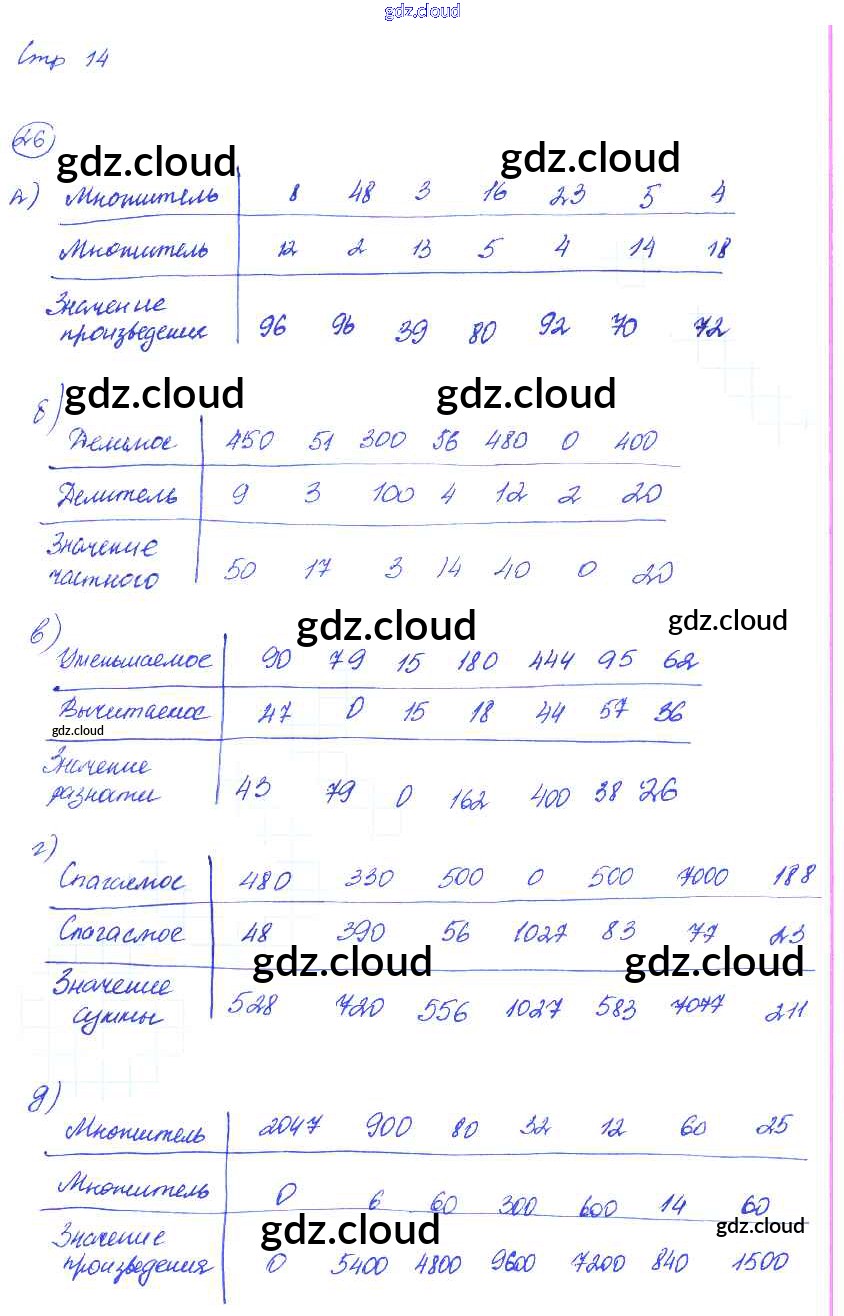 gdz.cloud
Стр 14
26
gdz.cloud gdz.cloud
А) Множитель 8 48 3 16 23 5 4
Множитель 12 2 13 5 4 14 18
Значение
произведения 96 96 39 80 92 70 72
gdz.cloud gdz.cloud
б)
Делимое 450 51 300 56 480 0 400
Делитель 9 3 100 4 12 2 20
Значение
частного 50 17 3 14 40 0 20
gdz.cloud gdz.cloud
в)
Уменьшаемое 90 79 15 180 444 95 62
Вычитаемое 47 0 15 18 44 57 36
gdz.cloud
Значение
разности 43 79 0 162 400 38 26
г)
Слагаемое 480 330 500 0 500 7000 188
Слагаемое 48 390 56 1027 83 77 23
gdz.cloud gdz.cloud
Значение
суммы 528 720 556 1027 583 7077 211
д)
Множитель 2047 900 80 32 12 60 25
Множитель 0 6 60 300 600 14 60
gdz.cloud gdz.cloud
Значение
произведения 0 5400 4800 9600 7200 840 1500